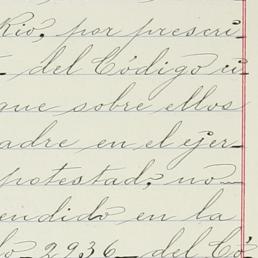 Rio, por prescri-
del Código ci-
que sobre ellos
adre en el ejer-
potestad, no
endido en la
lo 2936 del Có-